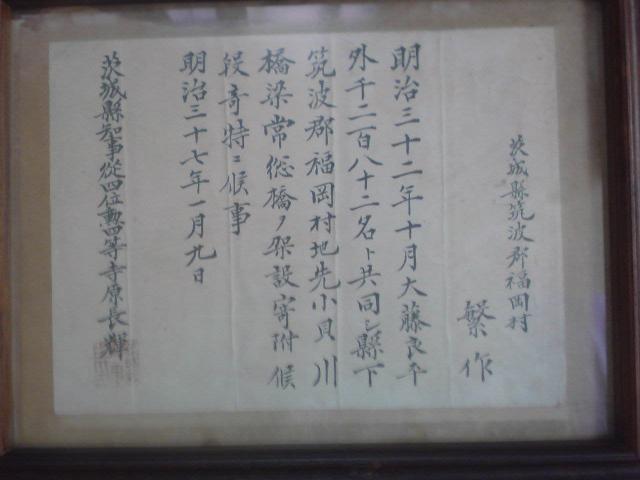 茨城縣筑波郡福岡村
繁作
明治三十二年十月大藤良平
外千二百八十二名ト共同シ縣下
筑波郡福岡村地先小貝川
橋梁常総橋ノ架設寄附候
段奇特ニ候事
明治三十七年一月九日
茨城縣知事從四位勲四等寺原長輝